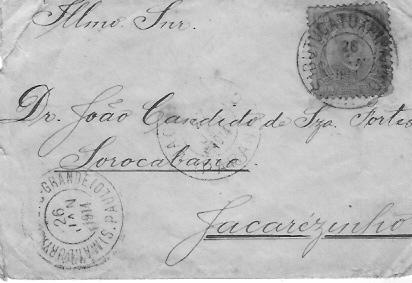 Illmo. Snr.
BOTUCATU
26
Dr. João Candido de Sza. Fortes
Sorocabana.
GRANDE (S. PAULO)
26
JAN
Jacarézinho